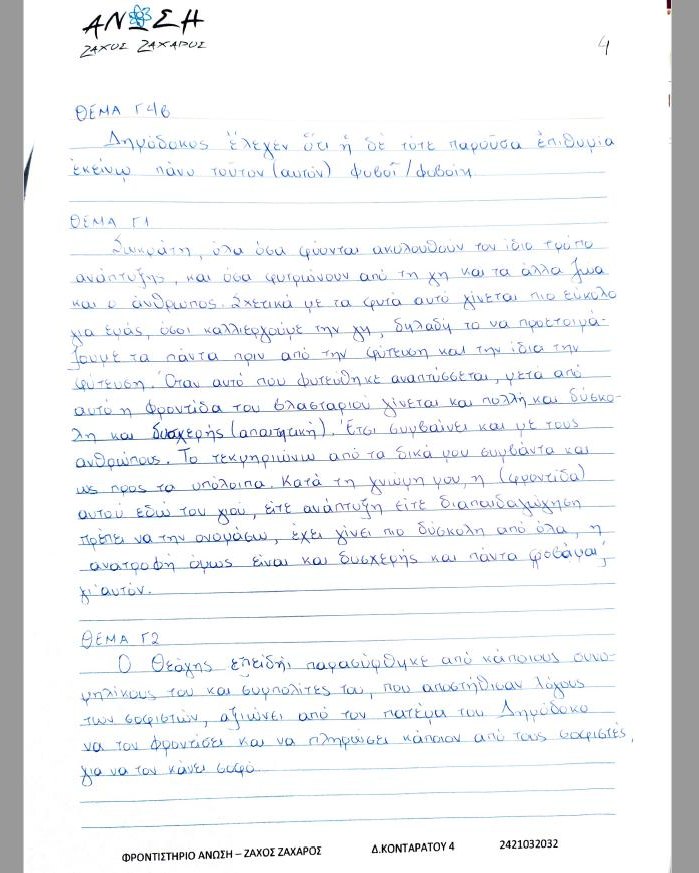 ΑΝΩΣΗ
ΖΑΧΟΣ ΖΑΧΑΡΟΣ
4
ΘΕΜΑ Γ4β
Δημόδοκος ἔλεγεν ὅτι ἡ δὲ τότε παροῦσα ἐπιθυμία
ἐκείνῳ πάνυ τοῦτον (αυτόν) φοβοῖ/φοβοίη
ΘΕΜΑ Γ1
Σωκράτη, όλα όσα φύονται ακολουθούν τον ίδιο τρόπο
ανάπτυξης, και όσα φυτρώνουν από τη γη και τα άλλα ζωα
και ο άνθρωπος. Σχετικά με τα φυτά αυτό γίνεται πιο εύκολο
για εμάς, όσοι καλλιεργούμε την γη, δηλαδή το να προετοιμά-
ζουμε τα πάντα πριν από την φύτευση και την ίδια την
φύτευση. Όταν αυτό που φυτεύθηκε αναπτύσσεται, μετά από
αυτό η φροντίδα του βλασταριού γίνεται και πολλή και δύσκο-
λη και δυσχερής (απαιτητική). Έτσι συμβαίνει και με τους
ανθρώπους. Το τεκμηριώνω από τα δικά μου συμβάντα και
ως προς τα υπόλοιπα. Κατά τη γνώμη μου, η (φροντίδα)
αυτού εδώ του γιού, είτε ανάπτυξη είτε διαπαιδαγώγηση
πρέπει να την ονομάσω, έχει γίνει πιο δύσκολη από όλα, η
ανατροφή όμως είναι και δυσχερής και πάντα φοβάμαι
γι' αυτόν.
ΘΕΜΑ Γ2
Ο Θεάγης επειδή παρασύρθηκε από κάποιους συνο-
μηλίκους του και συμπολίτες του, που αποστήθισαν λόγους
των σοφιστών, αξιώνει από τον πατέρα του Δημόδοκο
να τον φροντίσει και να πληρώσει κάποιον από τους σοφιστές,
για να τον κάνει σοφό.
ΦΡΟΝΤΙΣΤΗΡΙΟ ΑΝΩΣΗ – ΖΑΧΟΣ ΖΑΧΑΡΟΣ Δ.ΚΟΝΤΑΡΑΤΟΥ 4 2421032032